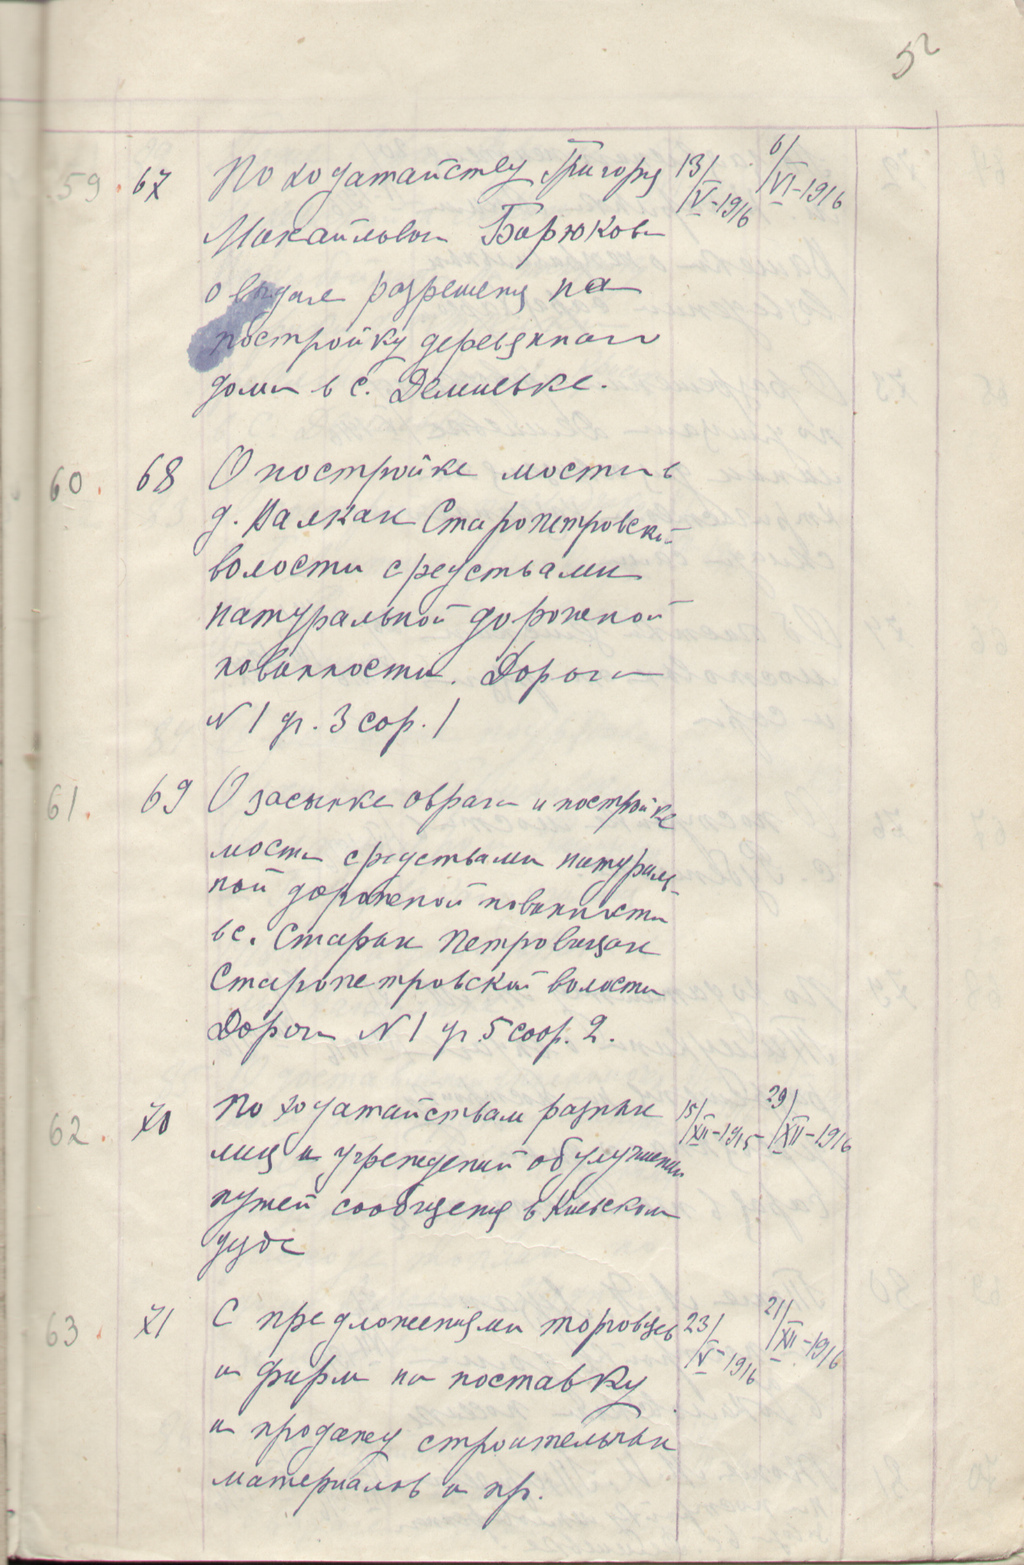 52
59. 67 По ходатайству Григория 13/IV-1916 6/VI-1916
Михайлова Барюкова
о выдаче разрешения на
постройку деревянного
дома в с. Демиевке.
60. 68 О постройке моста в
д. Валках Старопетровской
волости средствами
натуральной дорожной
повинности. Дорога
N 1 уч. 3 соор. 1
61. 69 О засыпке оврага и постройке
моста средствами натураль-
ной дорожной повинности
в с. Старых Петровцах
Старопетровской волости
Дорога N 1 уч. 5 соор. 2.
62. 70 По ходатайствам разных 15/XII-1915- 29/XII-1916
лиц и учреждений об улучшении
путей сообщения в Киевском
уезде
63. 71 С предложениями торговцев 23/V-1916 21/XII-1916
и фирм на поставку
и продажу строительных
материалов и пр.